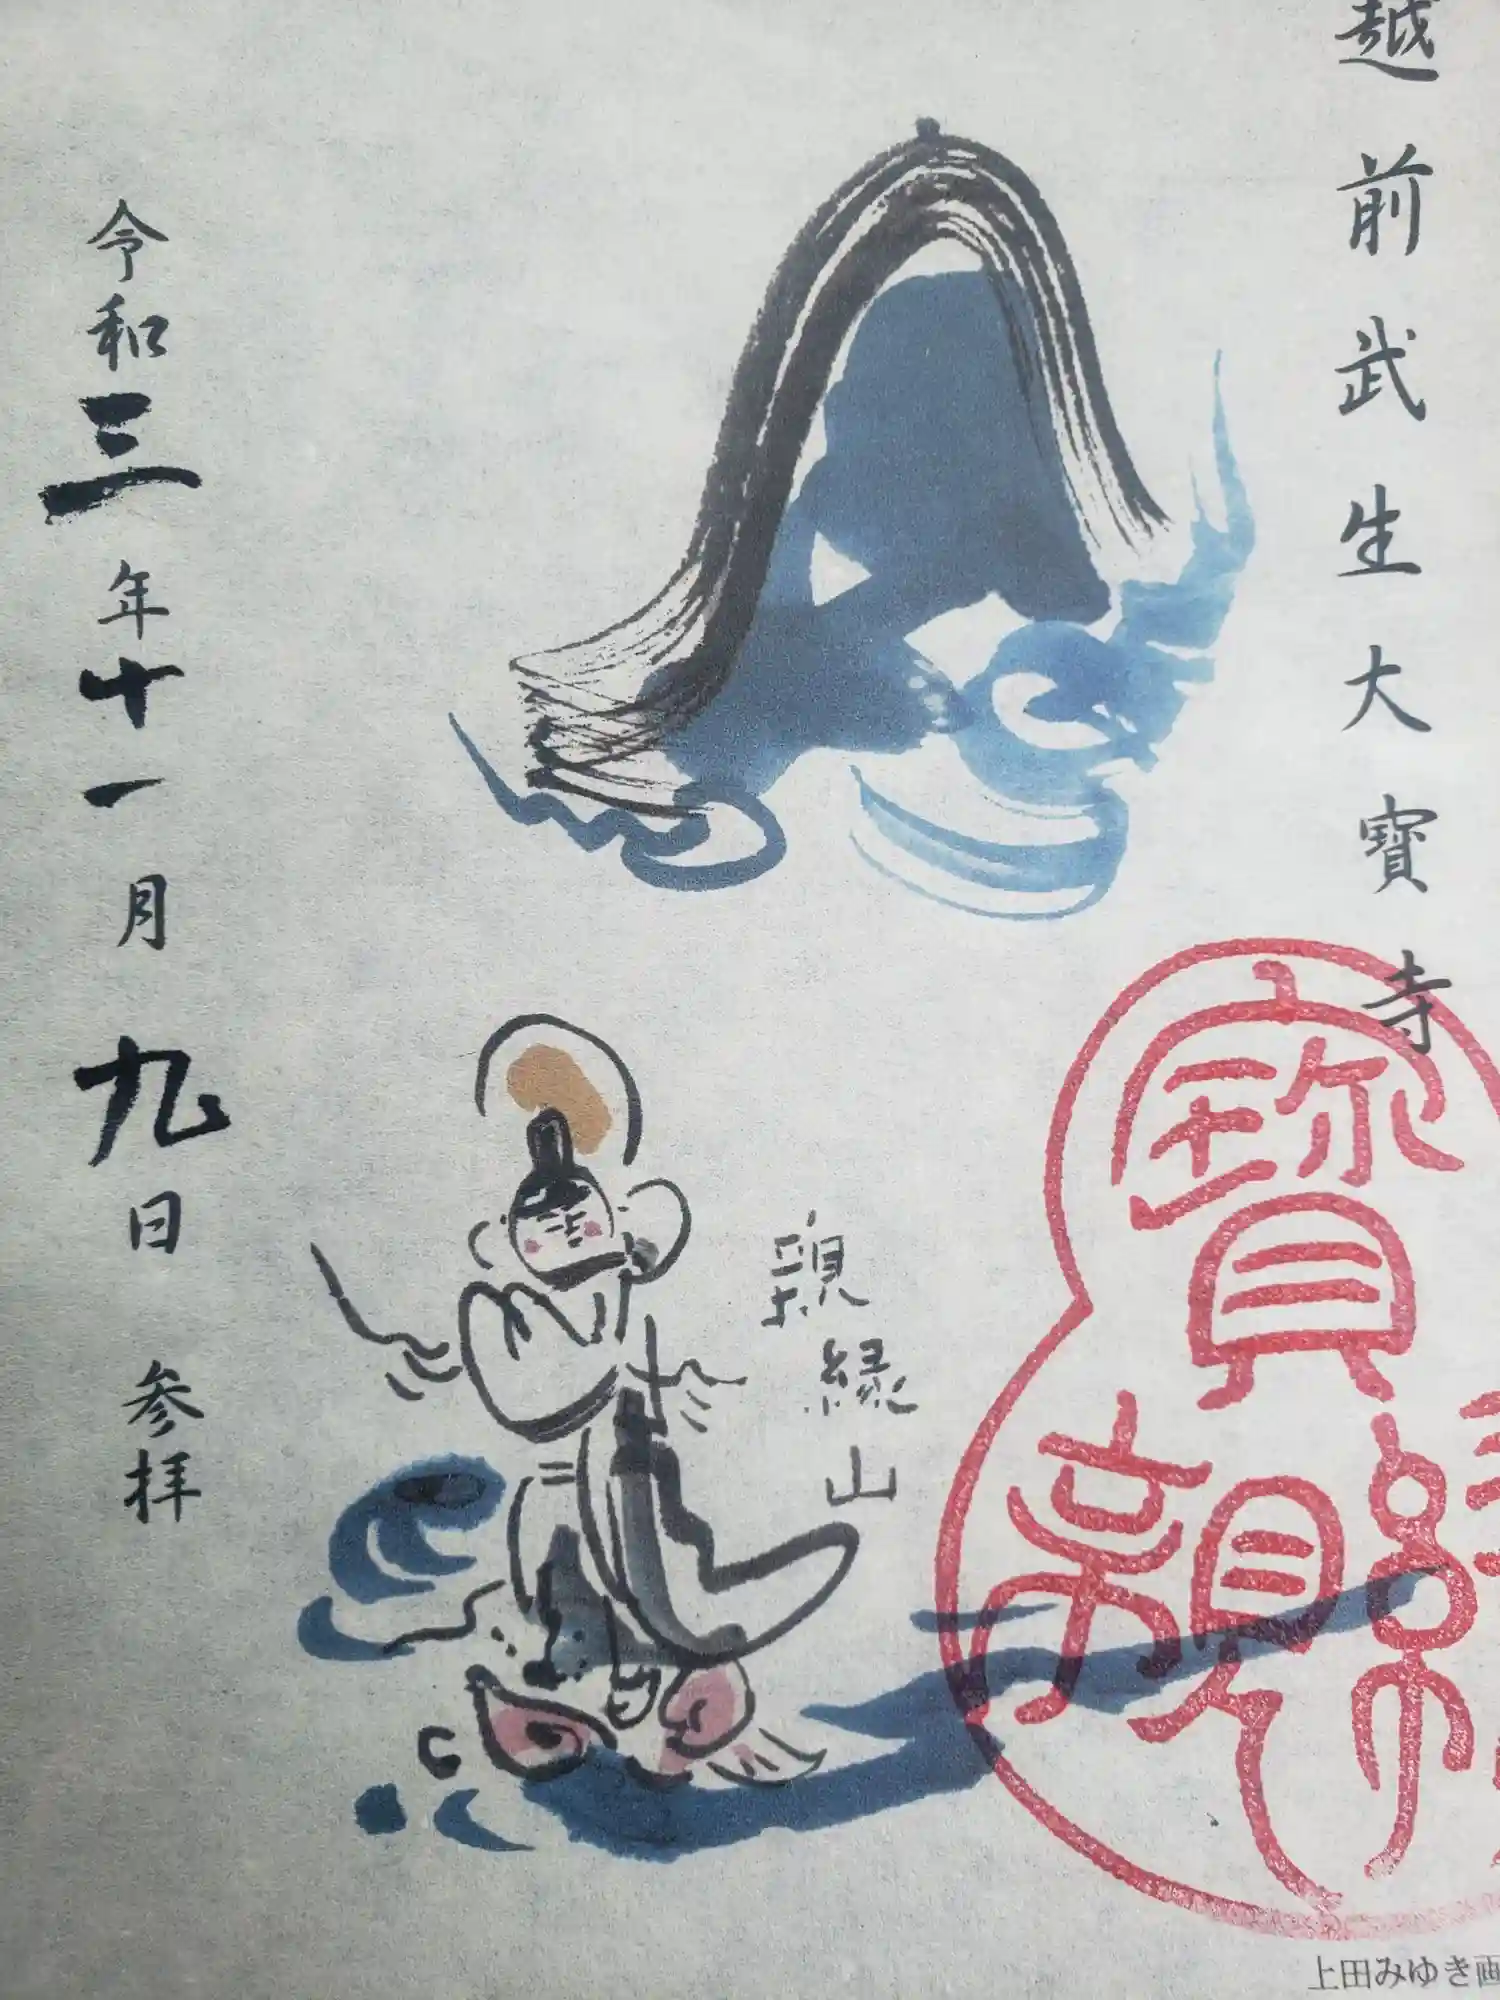 越前武生大寳寺
親縁山
令和三年十一月九日 参拝
寳
親縁
上田みゆき画